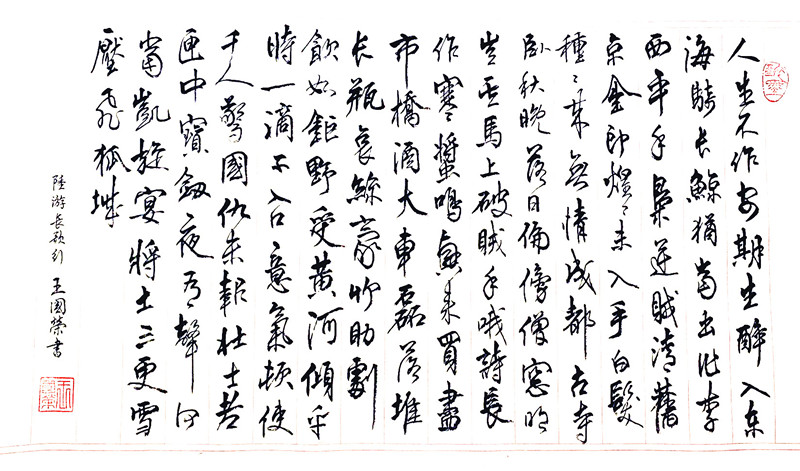 人生不作安期生醉入东
海騎長鯨猶當出作李
西平手梟逆賊清舊
京金印煌〻未入手白髮
種〻来無情成都古寺
卧秋晚落日偏傍僧窓明
豈其馬上破賊手哦詩長
作寒螿鳴興来買盡
市橋酒大車磊落堆
长瓶哀絲豪竹助劇
飲如鉅野受黃河傾平
時一滴不入口意氣頓使
千人驚國仇未報壯士老
匣中寶劒夜有聲何
當凱旋宴將士三更雪
壓飛狐城
陸游長歌行 王國榮書